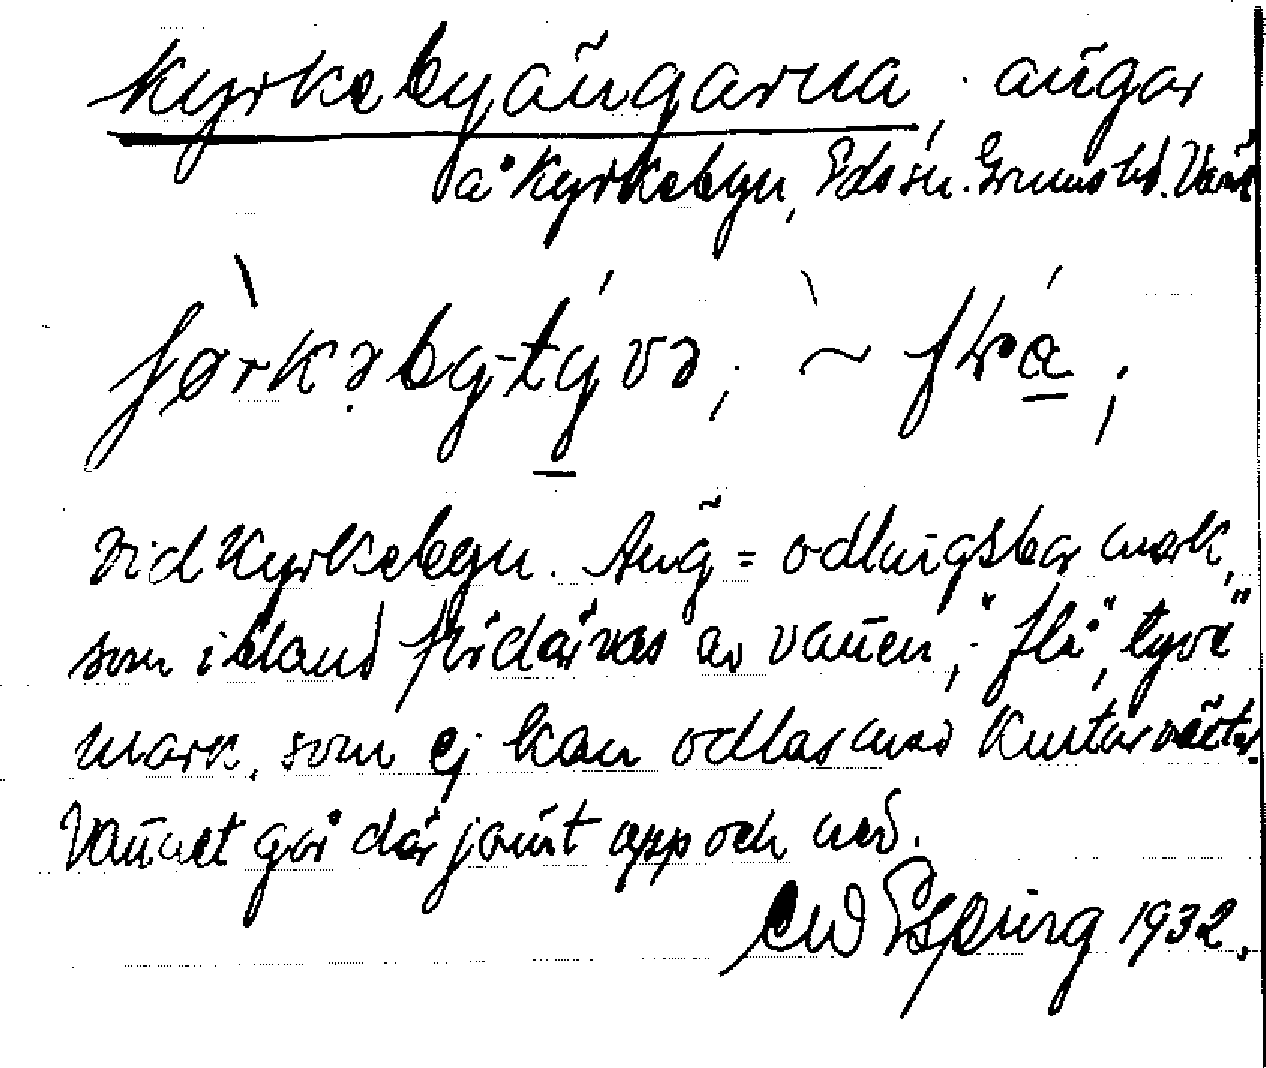 Kyrkebyängarna, ängar
å Kyrkebyn, Eds sn. Grums hd. Värml
vid Kyrkebyn. Äng = odlingsbar mark,
som ibland fördärvas av vatten; "flå", tyvä"
mark, som ej kan odlas med kulturväxter.
Vattnet går där jämt upp och ned.
CW Espring 1932.